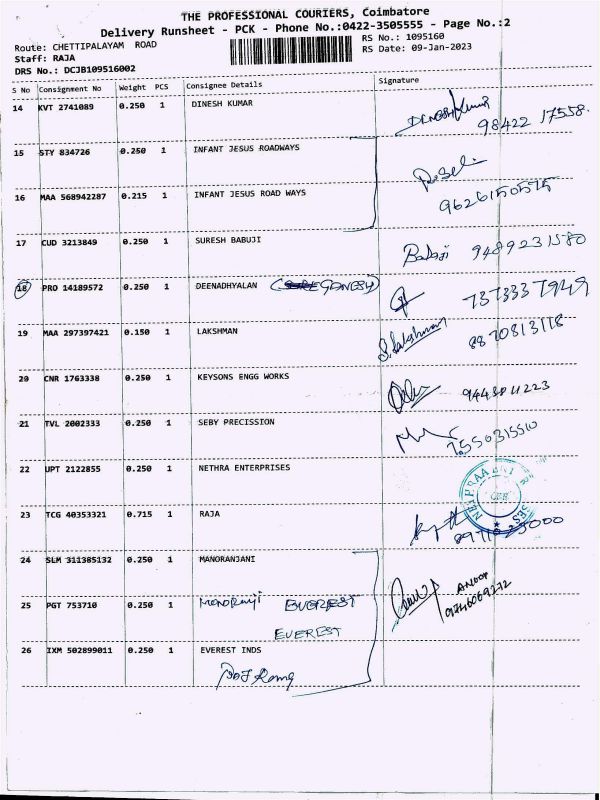 THE PROFESSIONAL COURIERS, Coimbatore
Delivery Runsheet - PCK - Phone No.:0422-3505555 - Page No.:2
Route: CHETTIPALAYAM ROAD
RS No.: 1095160
Staff: RAJA
RS Date: 09-Jan-2023
DRS No.: DCJB109516002
S No Consignment No Weight PCS Consignee Details Signature
14 KVT 2741089 0.250 1 DINESH KUMAR
98422 17558
15 STY 834726 0.250 1 INFANT JESUS ROADWAYS
16 MAA 568942287 0.215 1 INFANT JESUS ROAD WAYS
9626150575
17 CUD 3213849 0.250 1 SURESH BABUJI Babuji 9489231580
18 PRO 14189572 0.250 1 DEENADHYALAN
7373337949
19 MAA 297397421 0.150 1 LAKSHMAN S. Lakshman 8870813118
20 CNR 1763338 0.250 1 KEYSONS ENGG WORKS
21 TVL 2002333 0.250 1 SEBY PRECISSION
7550315510
22 UPT 2122855 0.250 1 NETHRA ENTERPRISES
23 TCG 40353321 0.715 1 RAJA
24 SLM 311385132 0.250 1 MANORANJANI
ANOOP
25 PGT 753710 0.250 1 EVEREST
EVEREST
26 IXM 502899011 0.250 1 EVEREST INDS